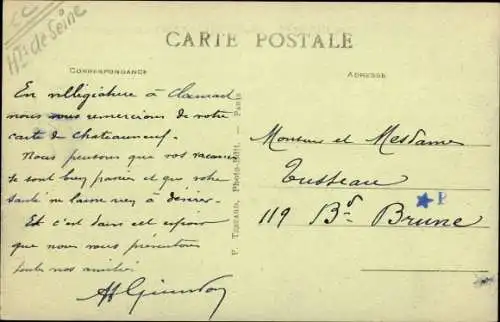 Hts de Seine
CARTE POSTALE
CORRESPONDANCE
ADRESSE
En villégiature à Clamart
nous vous remercions de votre
carte de Chateauneuf.
Nous pensons que vos vacances
se sont bien passées et que votre
santé ne laisse rien à désirer.
Et c'est dans cet espoir
que nous vous présentons
toutes nos amitiés
Monsieur et Mesdames
Tusseau
119 Bd Brune
P
Photo-Edit. — Paris